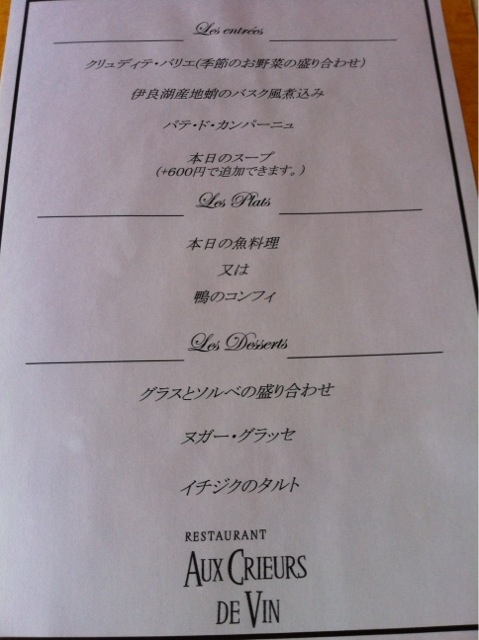 Les entrées
クリュディテ・バリエ(季節のお野菜の盛り合わせ)
伊良湖産地蛸のバスク風煮込み
パテ・ド・カンパーニュ
本日のスープ
(+600円で追加できます。)
Les Plats
本日の魚料理
又は
鴨のコンフィ
Les Desserts
グラスとソルベの盛り合わせ
ヌガー・グラッセ
イチジクのタルト
RESTAURANT
AUX CRIEURS
DE VIN